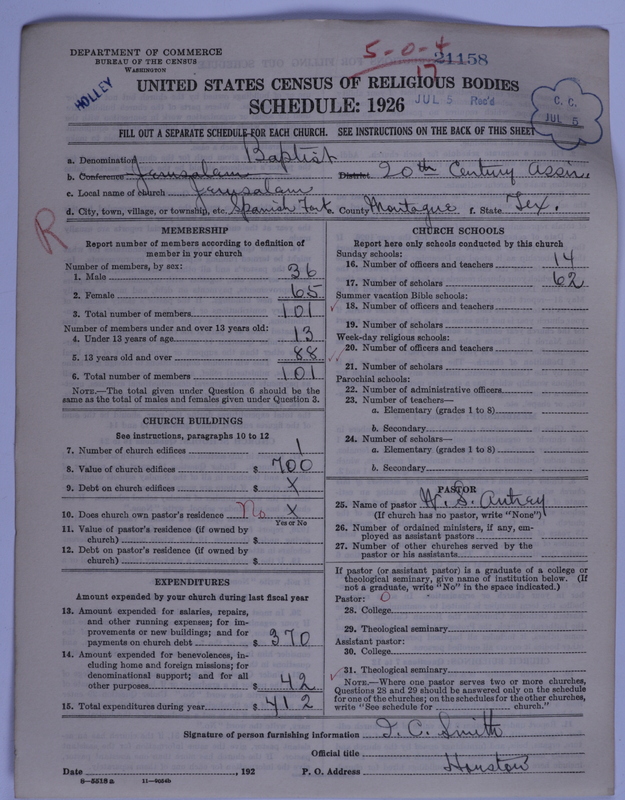 DEPARTMENT OF COMMERCE
BUREAU OF THE CENSUS
WASHINGTON
HOLLEY
5-0-4
17
21158
UNITED STATES CENSUS OF RELIGIOUS BODIES
SCHEDULE: 1926
JUL 5 Rec'd
C. C.
JUL 5
FILL OUT A SEPARATE SCHEDULE FOR EACH CHURCH. SEE INSTRUCTIONS ON THE BACK OF THIS SHEET
a. Denomination Baptist
b. Conference Jerusalam District 20th Century Assn.
c. Local name of church Jerusalam
d. City, town, village, or township, etc. Spanish Fort e. County Montague f. State Tex.
R
MEMBERSHIP
Report number of members according to definition of
member in your church
Number of members, by sex:
1. Male 36
2. Female 65
3. Total number of members 101
Number of members under and over 13 years old:
4. Under 13 years of age 13
5. 13 years old and over 88
6. Total number of members 101
NOTE.—The total given under Question 6 should be the
same as the total of males and females given under Question 3.
CHURCH BUILDINGS
See instructions, paragraphs 10 to 12
7. Number of church edifices 1
8. Value of church edifices $ 700
9. Debt on church edifices $ X
10. Does church own pastor's residence No X
Yes or No
11. Value of pastor's residence (if owned by
church) $
12. Debt on pastor's residence (if owned by
church) $
EXPENDITURES
Amount expended by your church during last fiscal year
13. Amount expended for salaries, repairs,
and other running expenses; for im-
provements or new buildings; and for
payments on church debt $ 370
14. Amount expended for benevolences, in-
cluding home and foreign missions; for
denominational support; and for all
other purposes $ 42
15. Total expenditures during year $ 412
CHURCH SCHOOLS
Report here only schools conducted by this church
Sunday schools:
16. Number of officers and teachers 14
17. Number of scholars 62
Summer vacation Bible schools:
18. Number of officers and teachers
19. Number of scholars
Week-day religious schools:
20. Number of officers and teachers
21. Number of scholars
Parochial schools:
22. Number of administrative officers
23. Number of teachers—
a. Elementary (grades 1 to 8)
b. Secondary
24. Number of scholars—
a. Elementary (grades 1 to 8)
b. Secondary
PASTOR
25. Name of pastor W. S. Autrey
(If church has no pastor, write "None")
26. Number of ordained ministers, if any, em-
ployed as assistant pastors
27. Number of other churches served by the
pastor or his assistants
If pastor (or assistant pastor) is a graduate of a college or
theological seminary, give name of institution below. (If
not a graduate, write "No" in the space indicated.)
Pastor: 0
28. College
29. Theological seminary
Assistant pastor:
30. College
31. Theological seminary
NOTE.—Where one pastor serves two or more churches,
Questions 28 and 29 should be answered only on the schedule
for one of the churches; on the schedules for the other churches,
write "See schedule for church."
Signature of person furnishing information J. C. Smith
Official title
Date , 192 P. O. Address Houston
8—5518 a 11—9024b